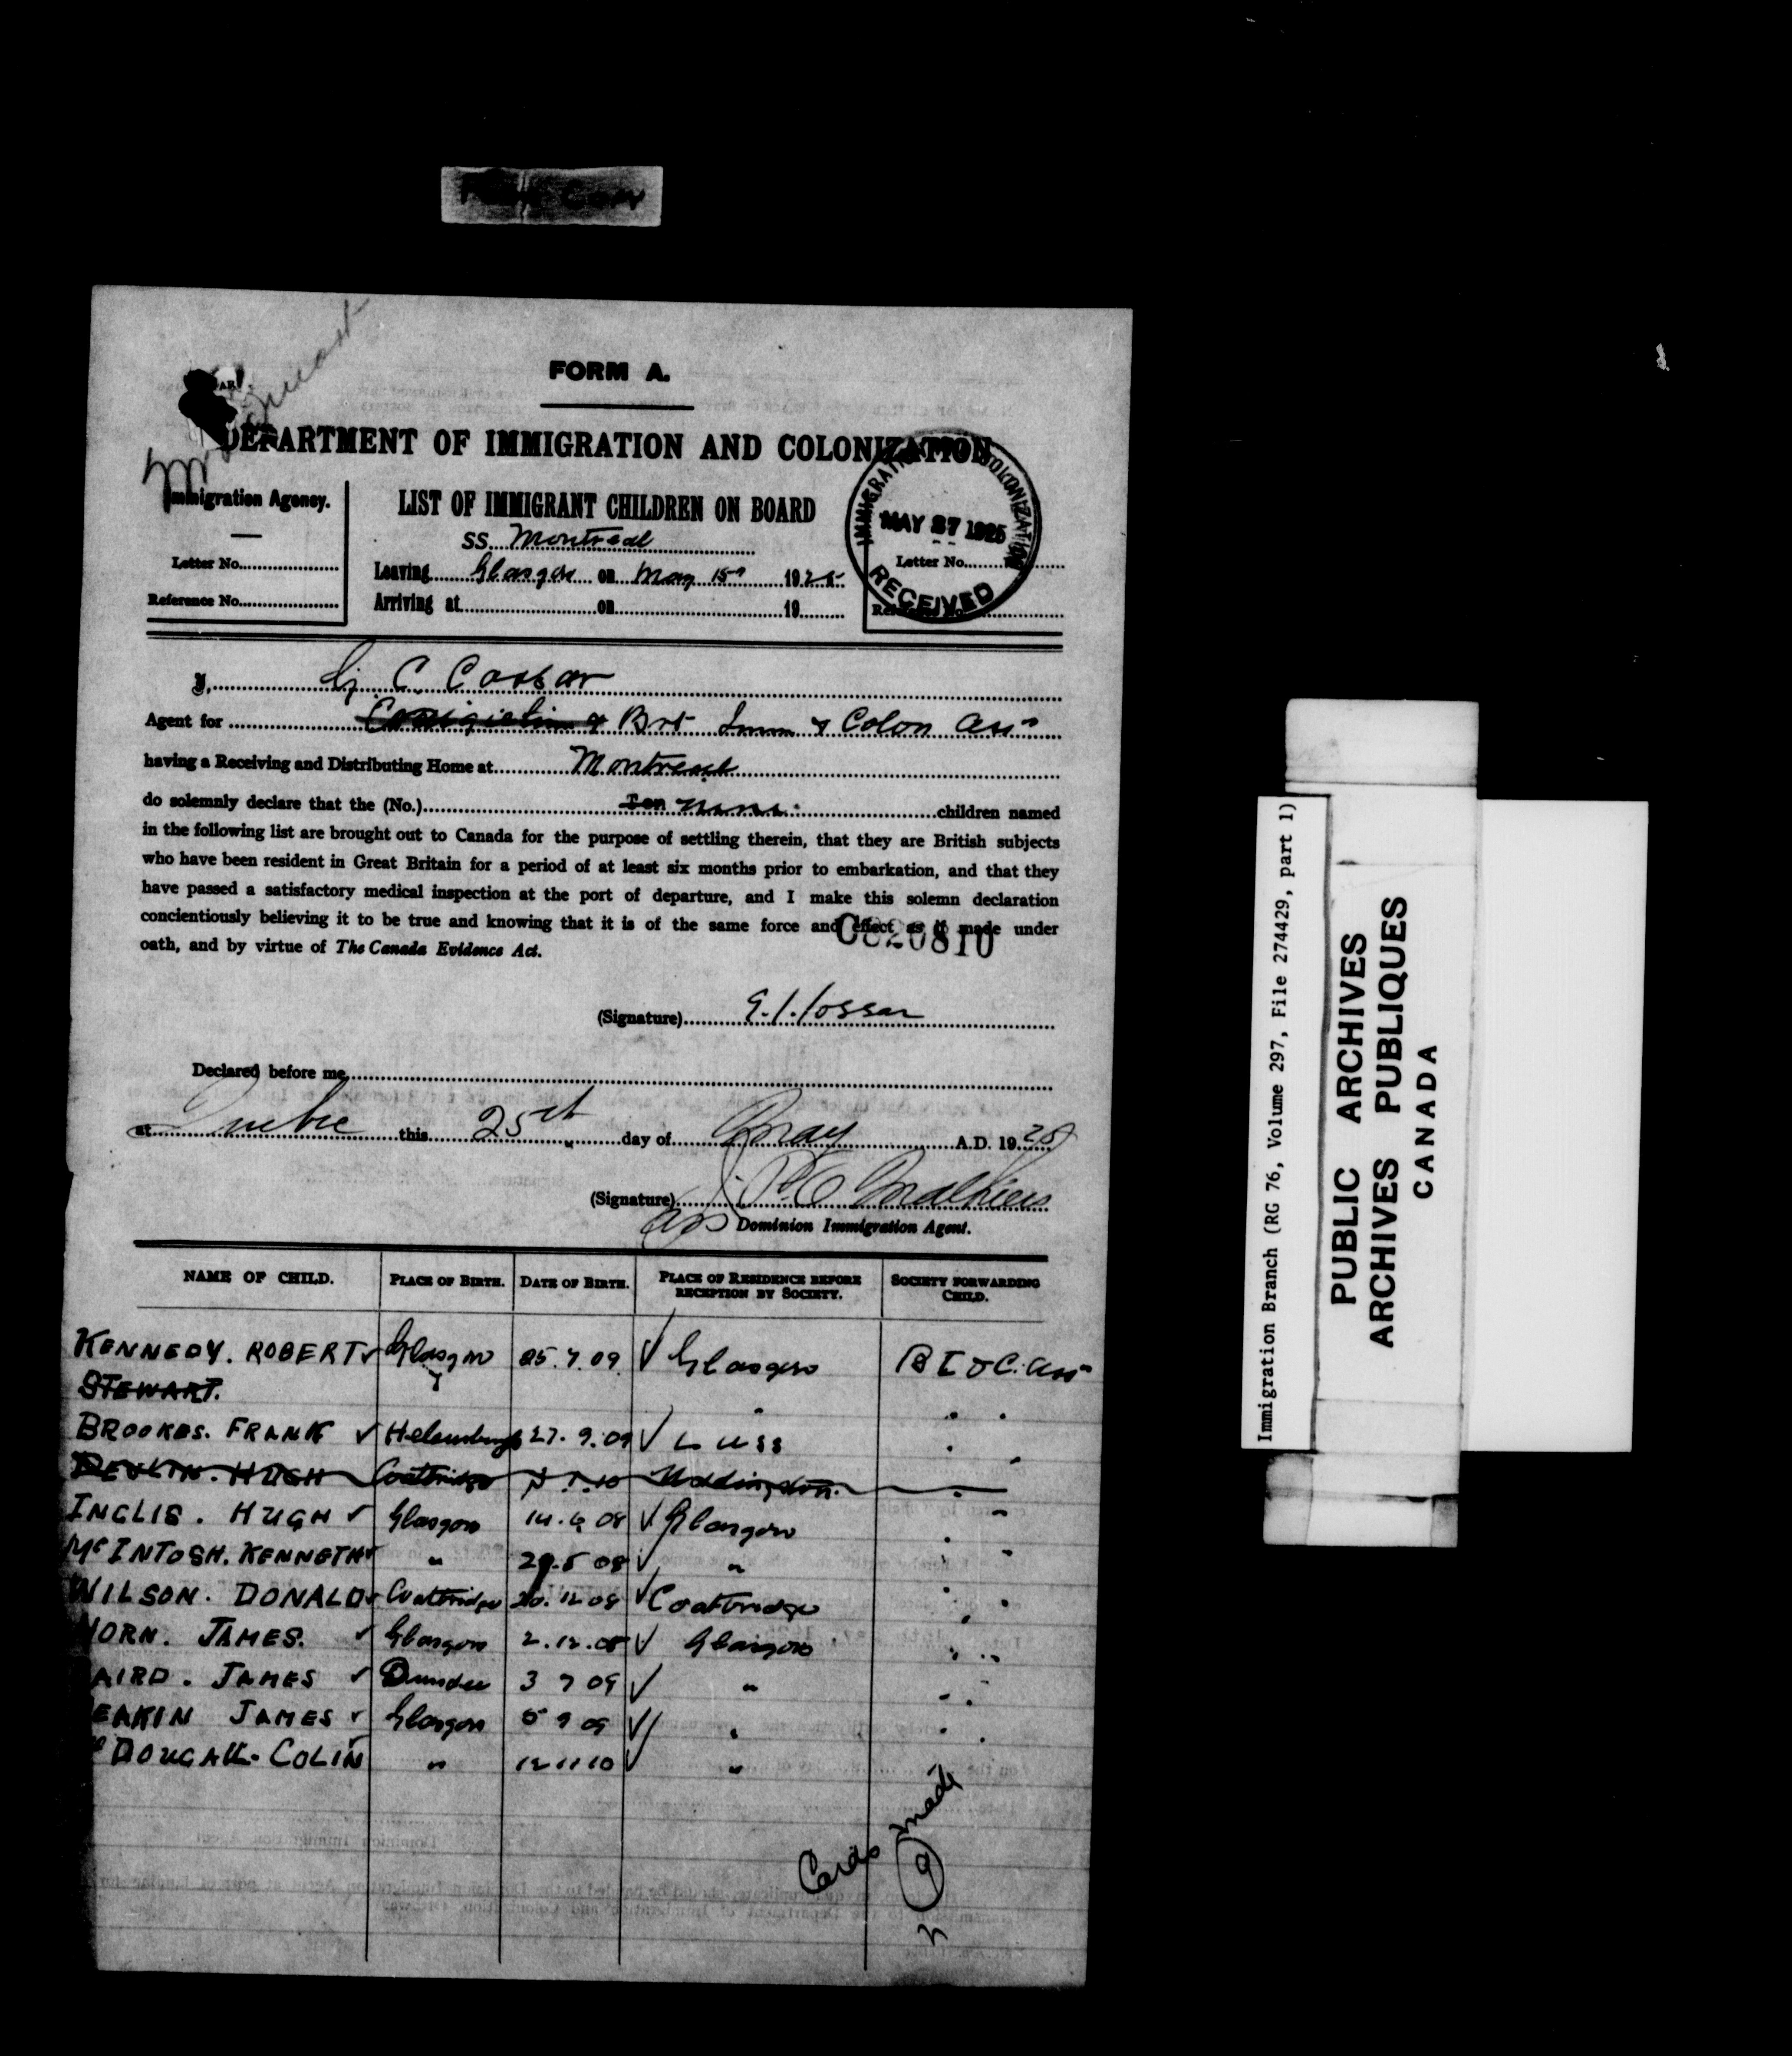 Copy
FORM A.
DEPARTMENT OF IMMIGRATION AND COLONIZATION
Immigration Agency.
Letter No.
Reference No.
LIST OF IMMIGRANT CHILDREN ON BOARD
SS. Montreal
Leaving Glasgow on May 15 1925
Arriving at on 19
IMMIGRATION COLONIZATION
MAY 27 1925
RECEIVED
Letter No.
I, G. C. Cossar
Agent for Brit Imm & Colon Assn
having a Receiving and Distributing Home at Montreal
do solemnly declare that the (No.) Ten nine children named
in the following list are brought out to Canada for the purpose of settling therein, that they are British subjects
who have been resident in Great Britain for a period of at least six months prior to embarkation, and that they
have passed a satisfactory medical inspection at the port of departure, and I make this solemn declaration
concientiously believing it to be true and knowing that it is of the same force and effect as if made under
oath, and by virtue of The Canada Evidence Act.
C020810
(Signature) G. C. Cossar
Declared before me
at Quebec this 25th day of May A.D. 1925
(Signature)
Dominion Immigration Agent.
NAME OF CHILD. PLACE OF BIRTH. DATE OF BIRTH. PLACE OF RESIDENCE BEFORE RECEPTION BY SOCIETY. SOCIETY FORWARDING CHILD.
KENNEDY. ROBERT ✓ Glasgow 25.7.09 ✓ Glasgow B I & C. Assn
STEWART.
BROOKES. FRANK ✓ Helensburgh 27. 9. 09 ✓ Luss
DEVLIN. HUGH Coatbridge Uddingston
INGLIS. HUGH ✓ Glasgow 14. 6 08 ✓ Glasgow
McINTOSH. KENNETH ✓ " 29.5 08 ✓ "
WILSON. DONALD ✓ Coatbridge 20. 12 08 ✓ Coatbridge
HORN. JAMES. ✓ Glasgow 2. 12. 08 ✓ Glasgow
AIRD. JAMES ✓ Dundee 3 7 09 ✓ "
EAKIN JAMES ✓ Glasgow 5 9 09 ✓ "
DOUGALL. COLIN " 12 11 10 ✓ "
Cards made
9
Immigration Branch (RG 76, Volume 297, File 274429, part 1)
PUBLIC ARCHIVES
ARCHIVES PUBLIQUES
CANADA